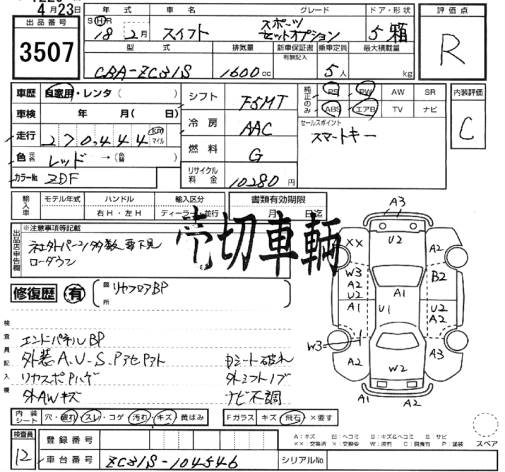 4月23日 年式 車名 グレード ドア・形状 評価点
出品番号 S H 18年 2月 スイフト スポーツ セットオプション 5 箱
3507 R
型式 排気量 新車保証書 乗車定員 最大積載量
有無記入
CBA-ZC31S 1600cc 5人 kg
車歴 自家用・レンタ( ) シフト F5MT 純正のみ PS PW AW SR 内装評価
車検 年 月( 日) ABS エアB TV ナビ C
走行 270,444 km マイル 冷房 AAC セールスポイント
スマートキー
色 元色 レッド →(色替 ) 燃料 G
カラーNo ZDF リサイクル料金 10280円
輸入車 モデル年式 ハンドル 輸入区分 書類有効期限
年 右H・左H ディーラー・並行 月 日迄
出品店申告欄 ※注意事項等記載
ローダウン
売切車両
修復歴 有 箇所 リヤフロアBP
検査員記入欄
エンドパネルBP
外装A.U.S.Pアセアト シート破れ
リヤスポPハゲ 外シフトノブ
外AWキズ ナビ不調
内装シート 穴・破れ・スレ・コゲ・汚れ・キズ・黄ばみ Fガラス キズ・飛石・×要す
検査員 12 登録番号
車台番号 ZC31S-104546 シリアルNo
スペア
A3
U2
XX A2
W3 A2 U2 A1 B2
A2 U1 A2 U2
W3 A1 A3
W2
A1 A2